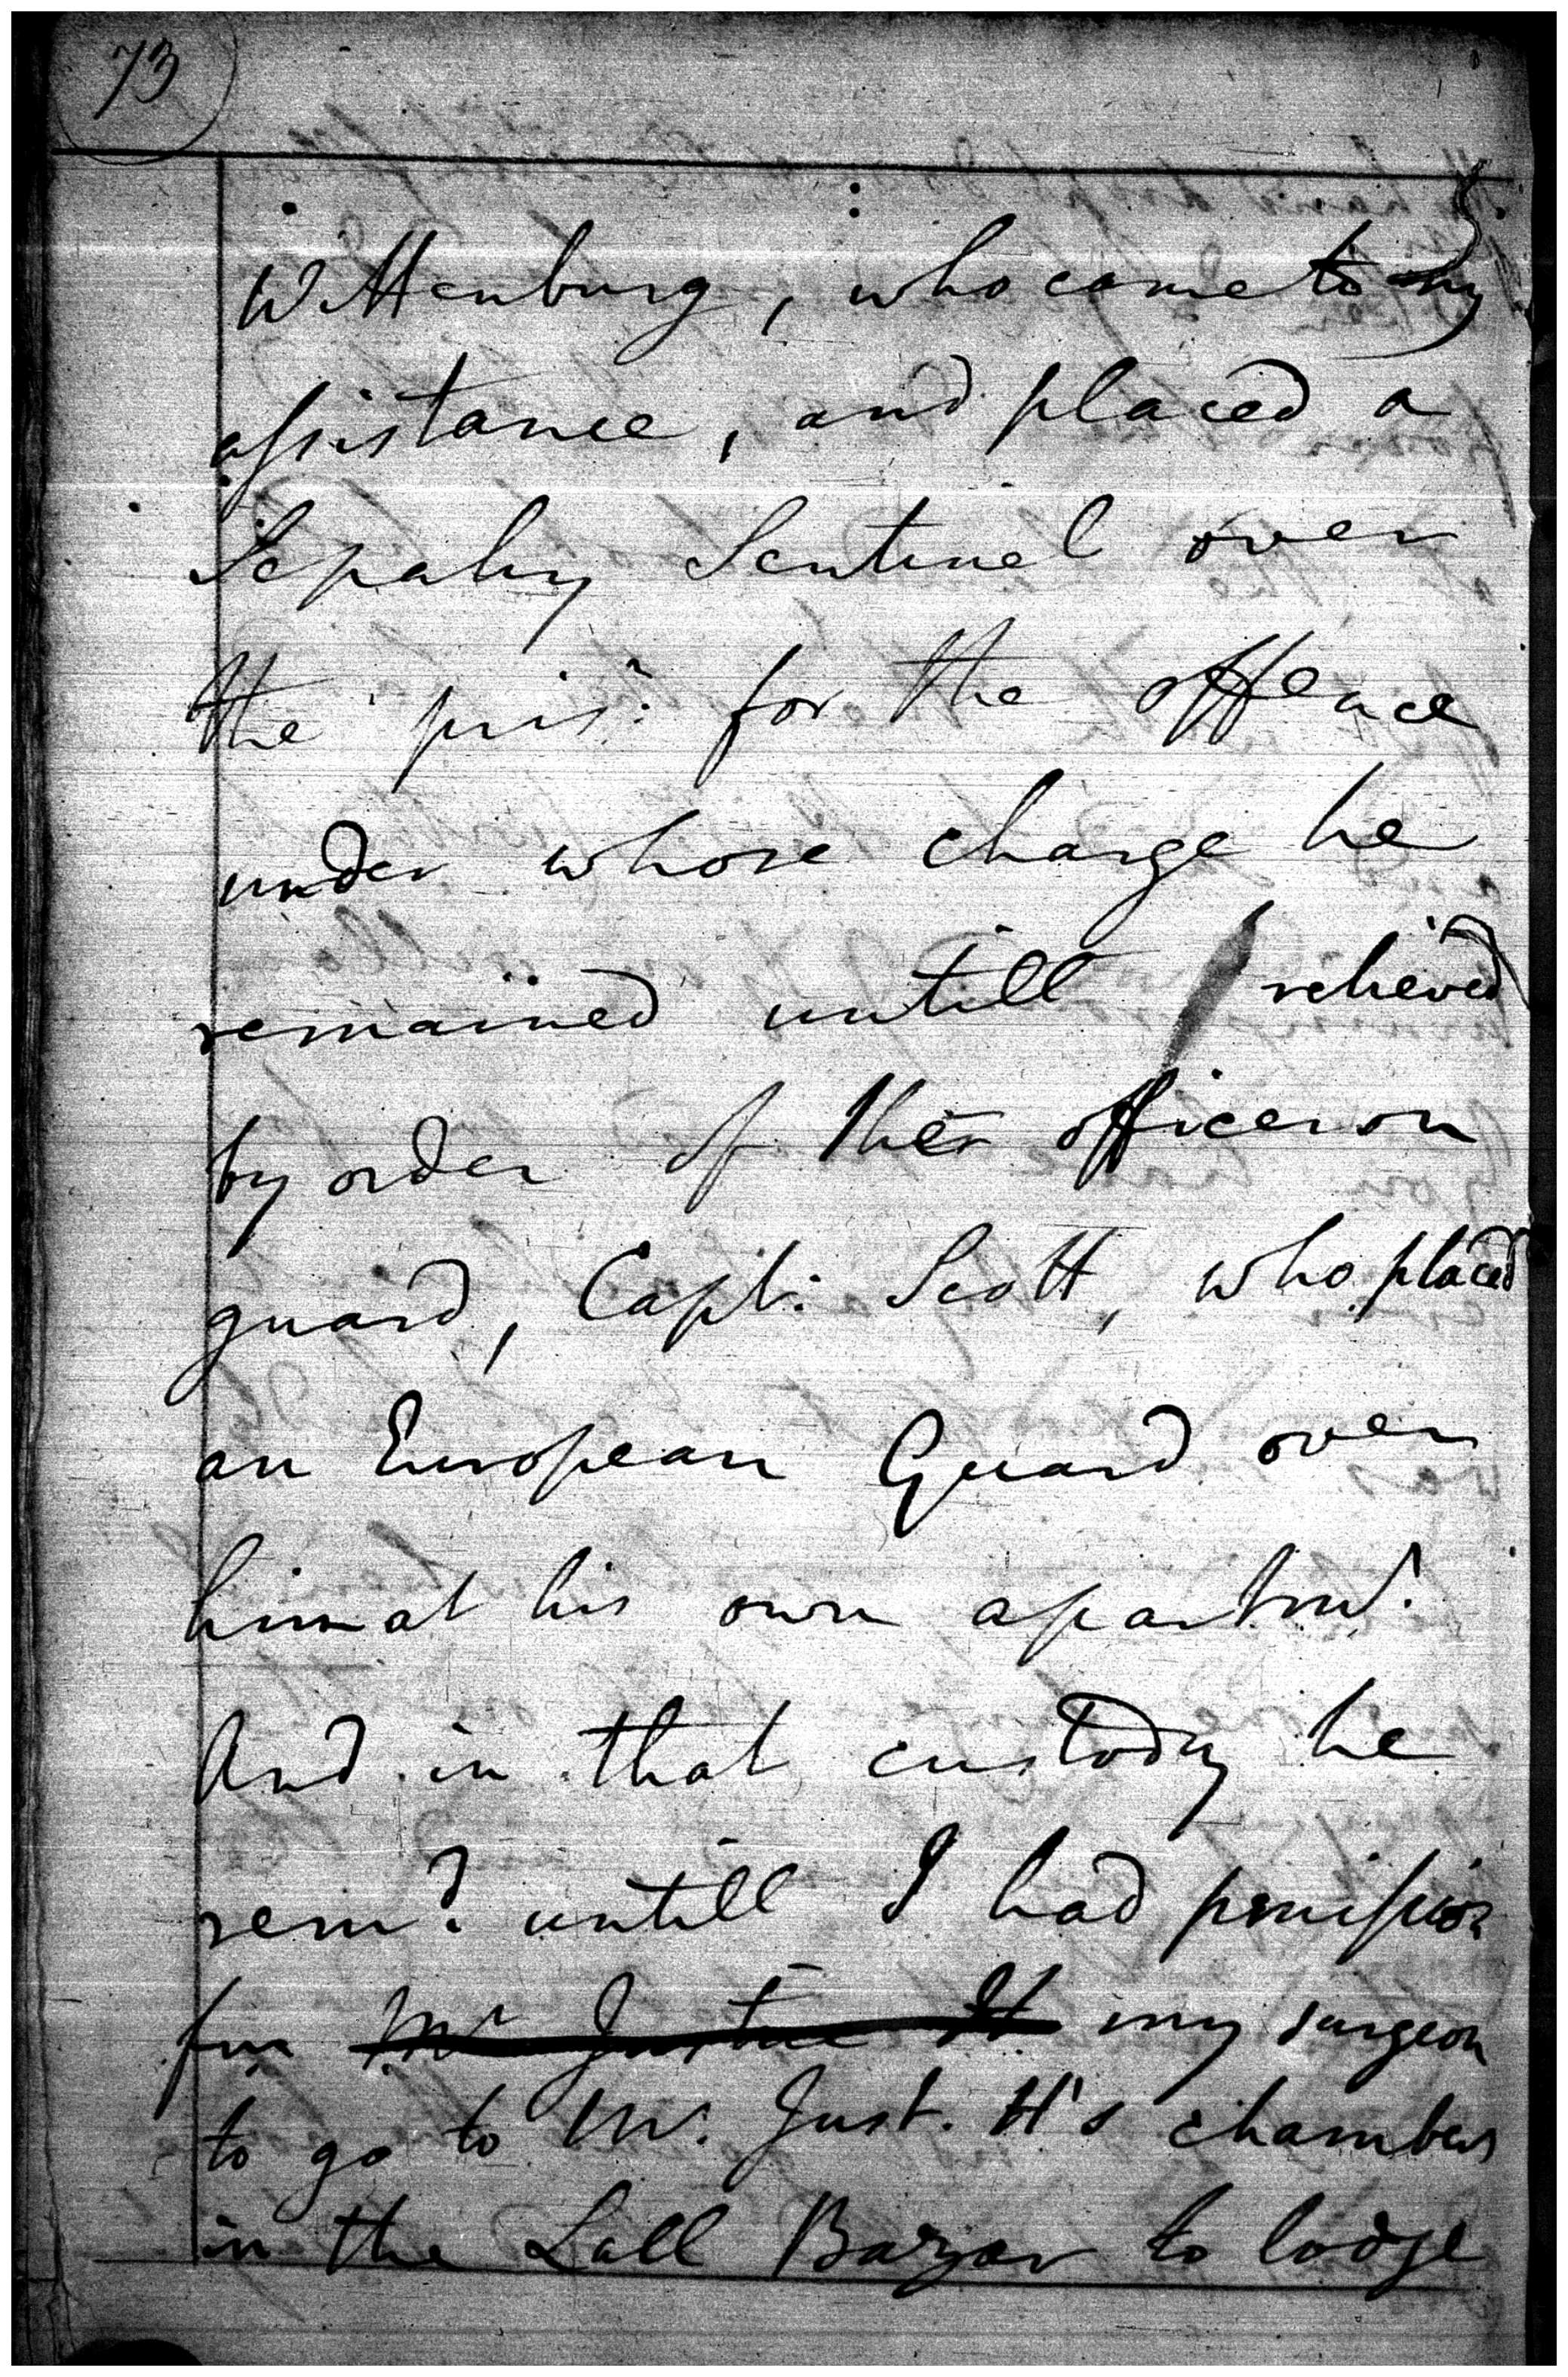 73
Wittenburg, who came to my
assistance, and placed a
Sepahy Sentinel over
the pris.r for the offence
under whose charge he
remained untill relieved
by order of the officer on
guard, Capt. Scott, who placed
an European Guard over
him at his own apartmt.
And in that custody he
rem.d untill I had permission
for Mr Justice H my surgeon
to go to Mr. Just. H's chambers
in the Lall Bazar to lodge